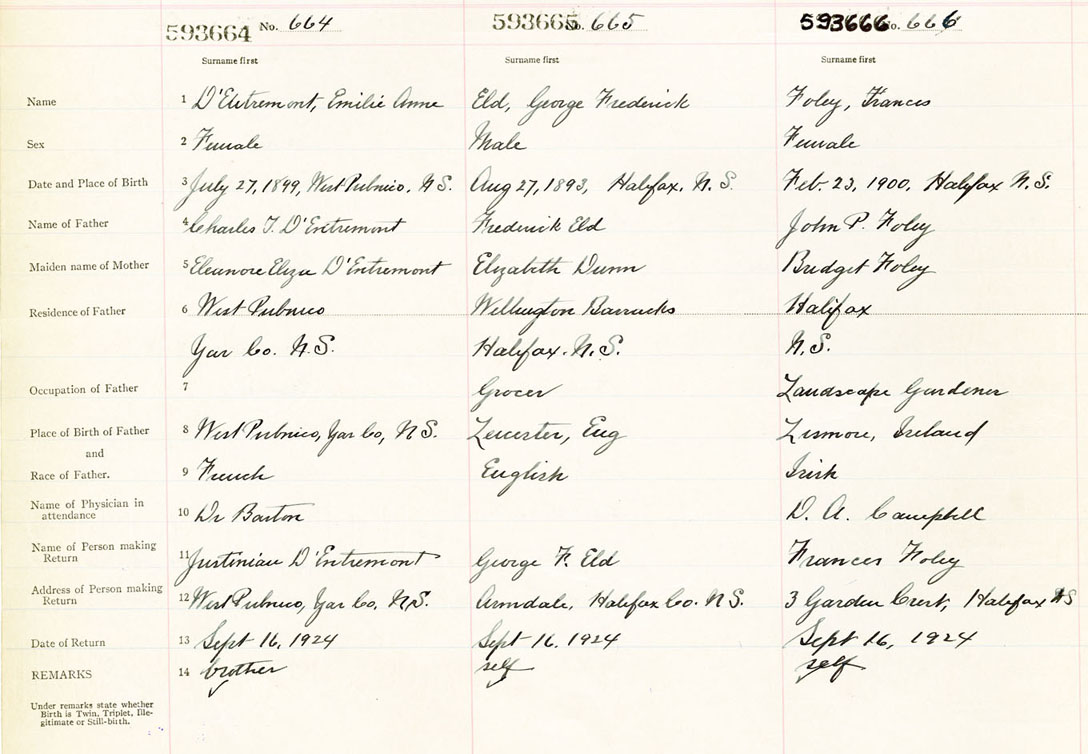 593664 No. 664 593665 No. 665 593666 No. 666
Surname first Surname first Surname first
Name 1 D'Entremont, Emilie Anne Eld, George Frederick Foley, Frances
Sex 2 Female Male Female
Date and Place of Birth 3 July 27, 1899, West Pubnico, N.S. Aug 27, 1893, Halifax, N.S. Feb. 23, 1900, Halifax N.S.
Name of Father 4 Charles T. D'Entremont Frederick Eld John P. Foley
Maiden name of Mother 5 Eleanore Eliza D'Entremont Elizabeth Dunn Bridget Foley
Residence of Father 6 West Pubnico Wellington Barracks Halifax
Yar Co. N.S. Halifax. N.S. N.S.
Occupation of Father 7 Grocer Landscape Gardener
Place of Birth of Father 8 West Pubnico, Yar Co, N.S. Leicester, Eng Lismore, Ireland
and
Race of Father. 9 French English Irish
Name of Physician in
attendance 10 Dr Barton D. A. Campbell
Name of Person making
Return 11 Justinian D'Entremont George F. Eld Frances Foley
Address of Person making
Return 12 West Pubnico, Yar Co, N.S. Armdale, Halifax Co. N.S. 3 Garden Crest, Halifax NS
Date of Return 13 Sept 16, 1924 Sept. 16. 1924 Sept 16, 1924
REMARKS 14 brother self self
Under remarks state whether
Birth is Twin, Triplet, Ille-
gitimate or Still-birth.